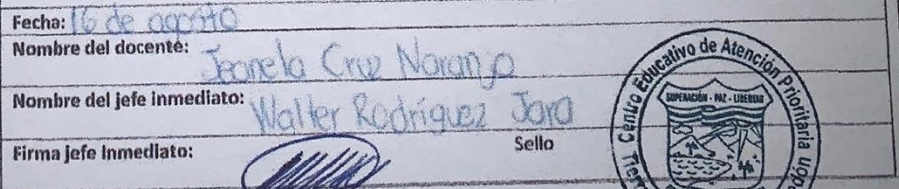 Fecha: 16 de agosto
Nombre del docente: Jeanela Cruz Naranjo
Nombre del jefe inmediato: Walter Rodríguez Jara
Firma jefe Inmediato:
Sello
Centro Educativo de Atención Prioritaria
SUPERACIÓN - PAZ - LIBERTAD